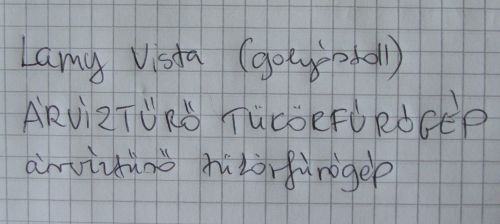 Lamy Vista (golyóstoll)
ÁRVÍZTŰRŐ TÜKÖRFÚRÓGÉP
árvíztűrő tükörfúrógép